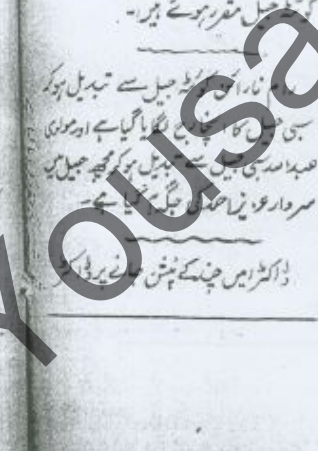 کوئٹہ جیل مقرر ہوئے ہیں۔
رام نارائن کوئٹہ جیل سے تبدیل ہو کر
سبی جیل کا انچارج لگایا گیا ہے اور مولوی
عبدالصمد سبی جیل سے تبدیل ہو کر مچھ جیل میں
سردار عزیز احمد کی جگہ گیا ہے۔
ڈاکٹر ایس چند کے پنشن جانے پر ڈاکٹر
Yousa